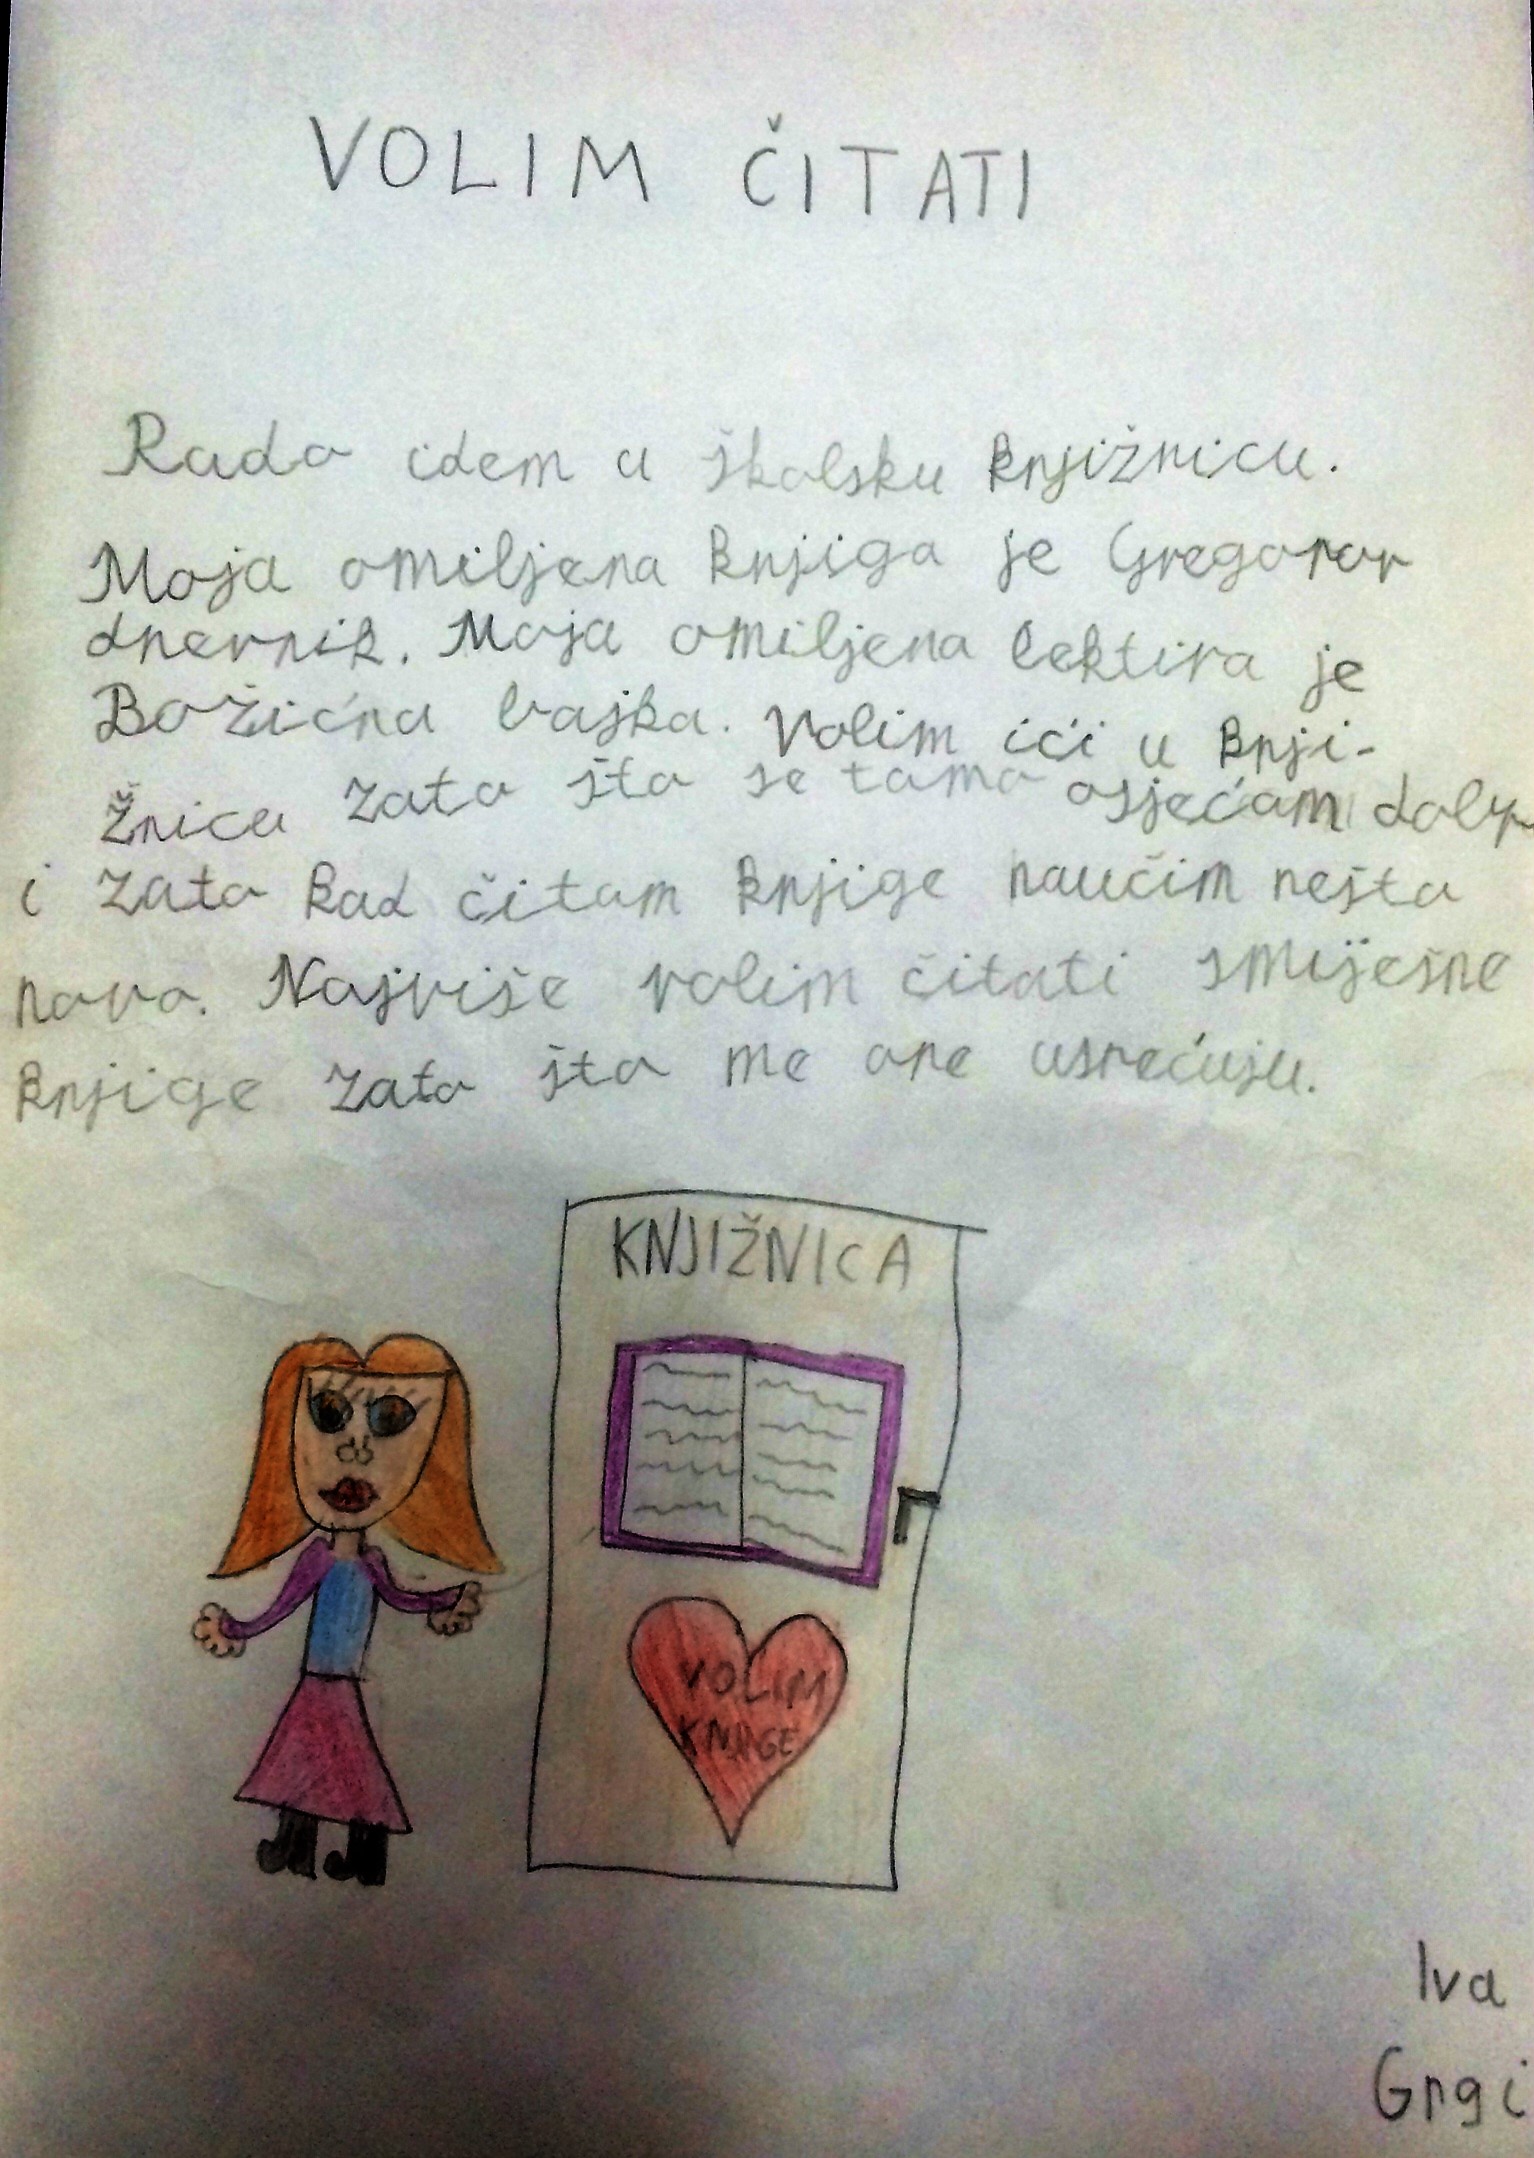 VOLIM ČITATI
Rado idem u školsku knjižnicu.
Moja omiljena knjiga je Gregorov
dnevnik. Moja omiljena lektira je
Božićna bajka. Volim ići u knji-
žnicu zato što se tamo osjećam
i zato kad čitam knjige naučim nešto
novo. Najviše volim čitati smiješne
knjige zato što me one usrećuju.
KNJIŽNICA
VOLIM
KNJIGE
Iva